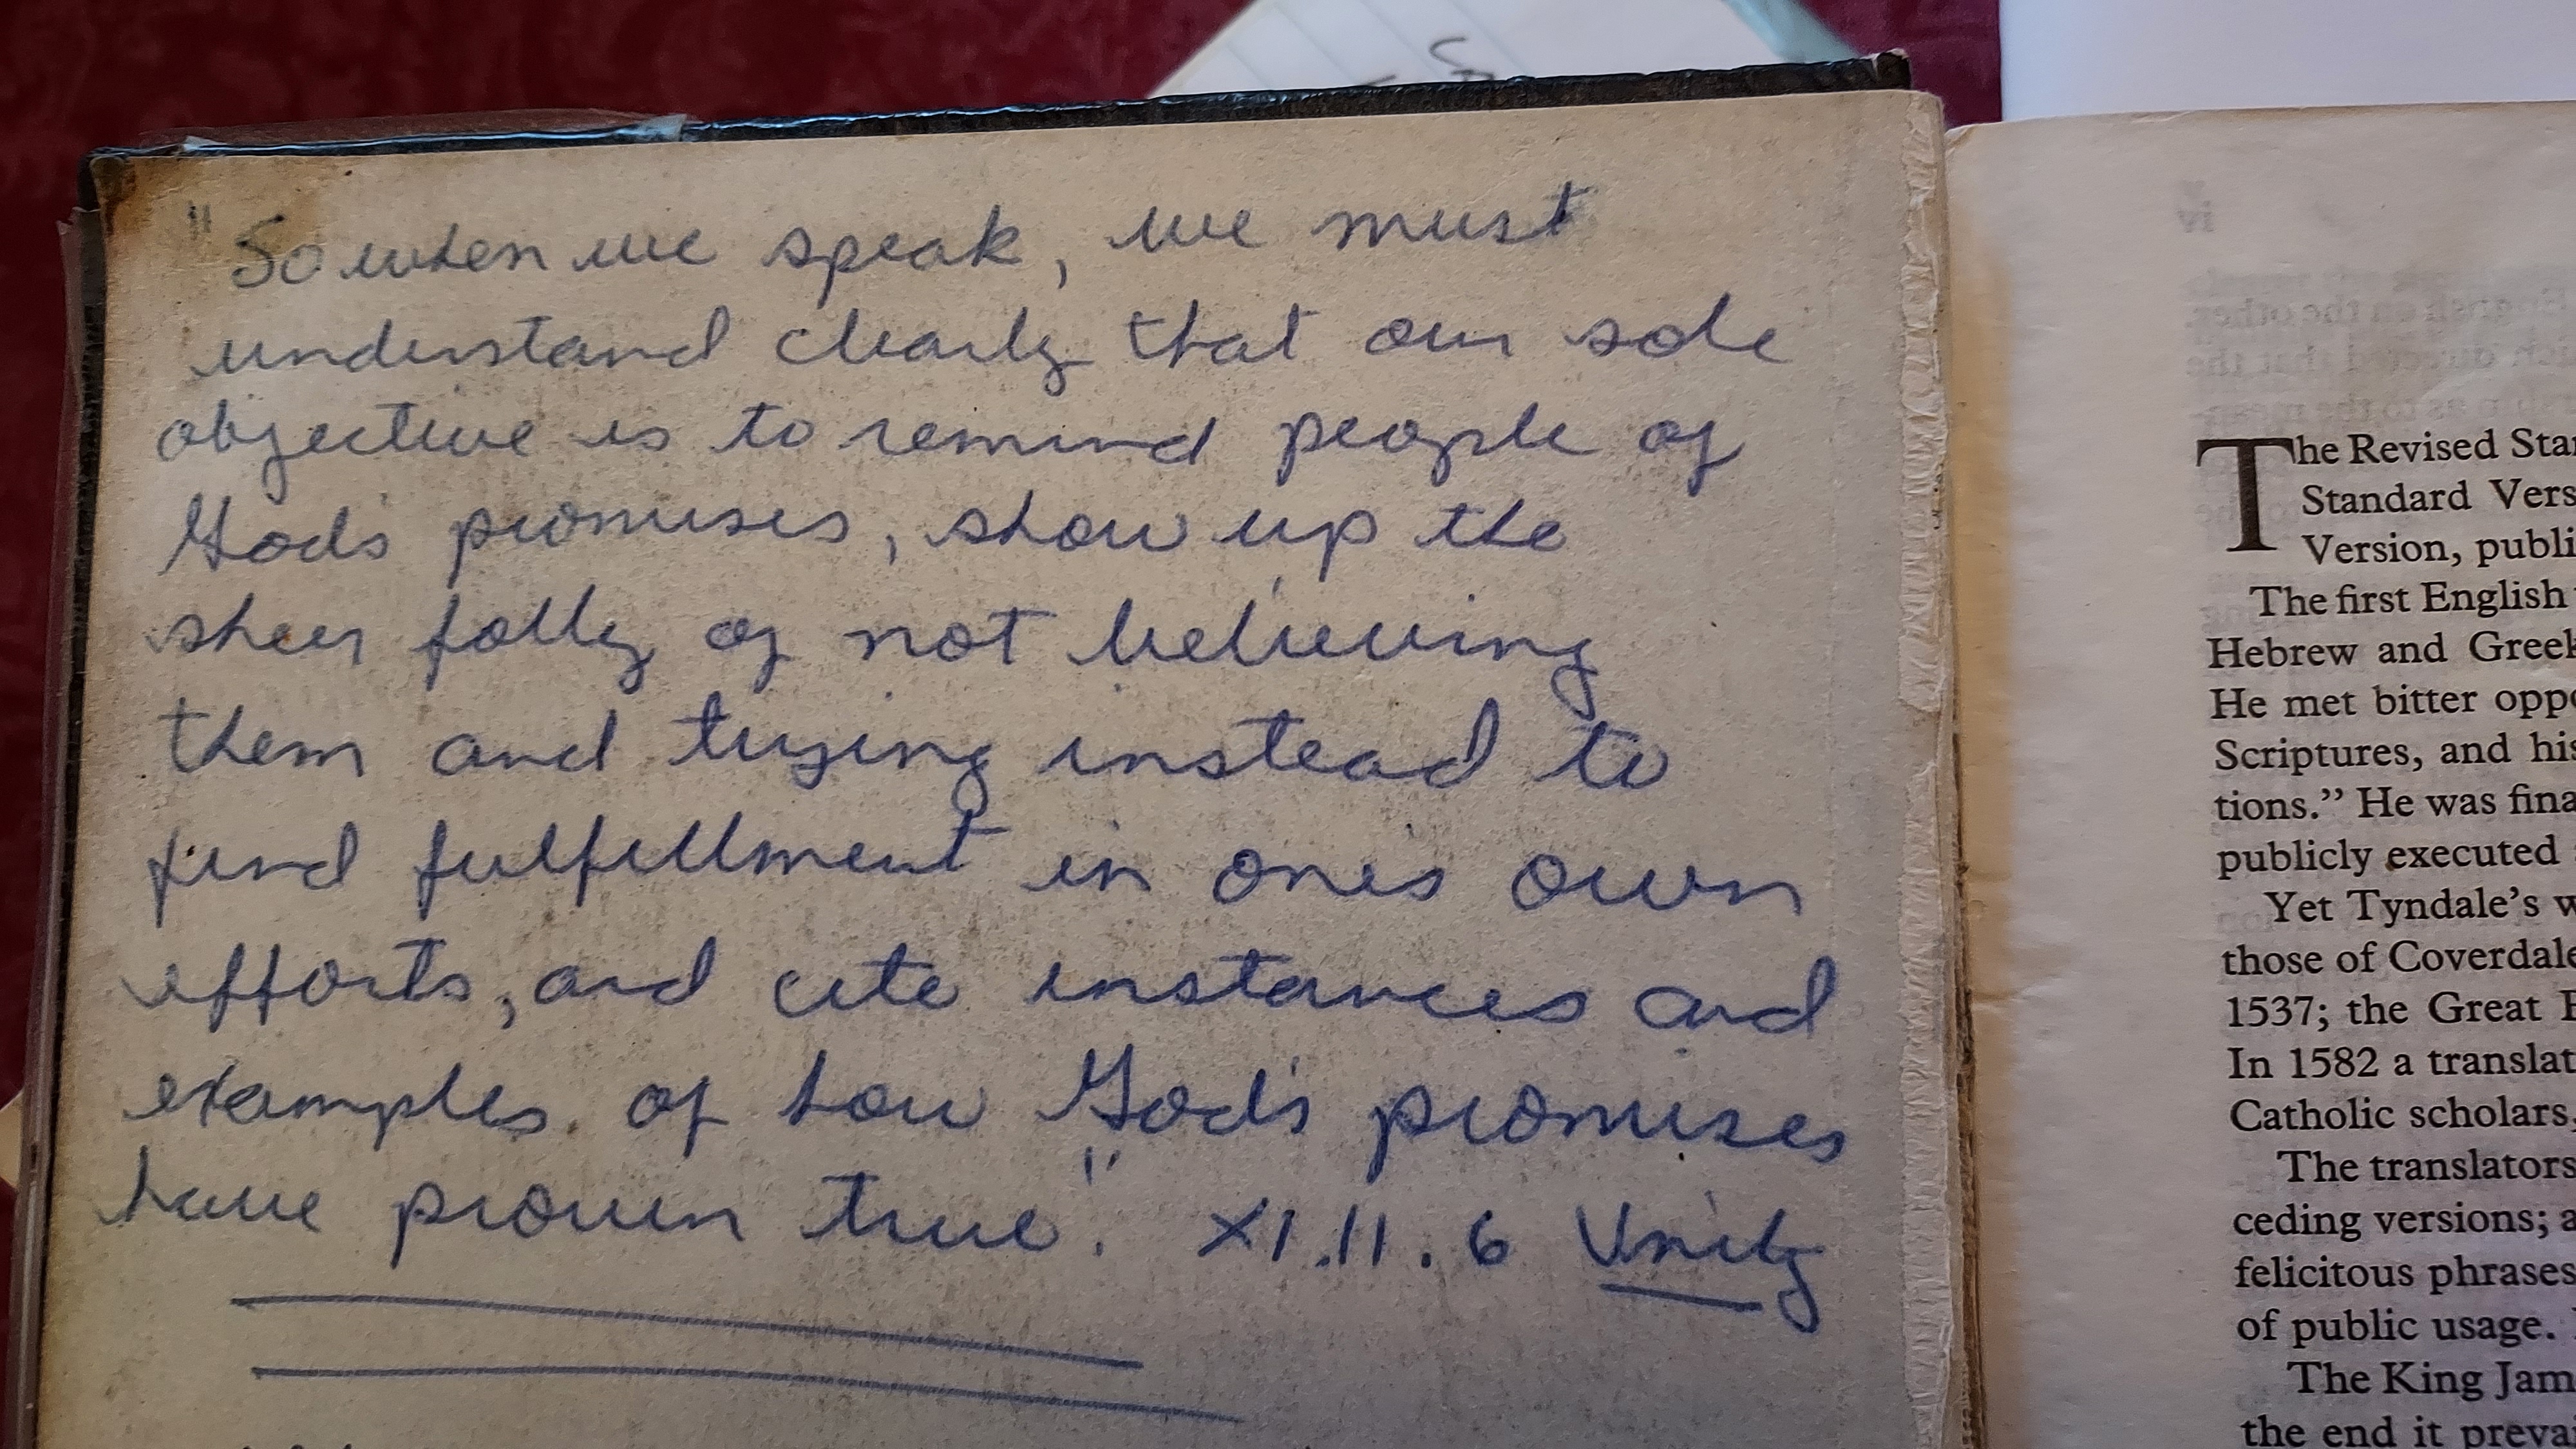 "So when we speak, we must
understand clearly that our sole
objective is to remind people of
God's promises, show up the
sheer folly of not believing
them and trying instead to
find fulfillment in one's own
efforts, and cite instances and
examples of how God's promises
have proven true." XI.11.6 Unity
iv
The Revised Sta
Standard Vers
Version, publi
The first English
Hebrew and Greek
He met bitter oppo
Scriptures, and his
tions." He was fina
publicly executed
Yet Tyndale's w
those of Coverdale
1537; the Great
In 1582 a translat
Catholic scholars,
The translators
ceding versions; a
felicitous phrases
of public usage.
The King Jam
the end it preva